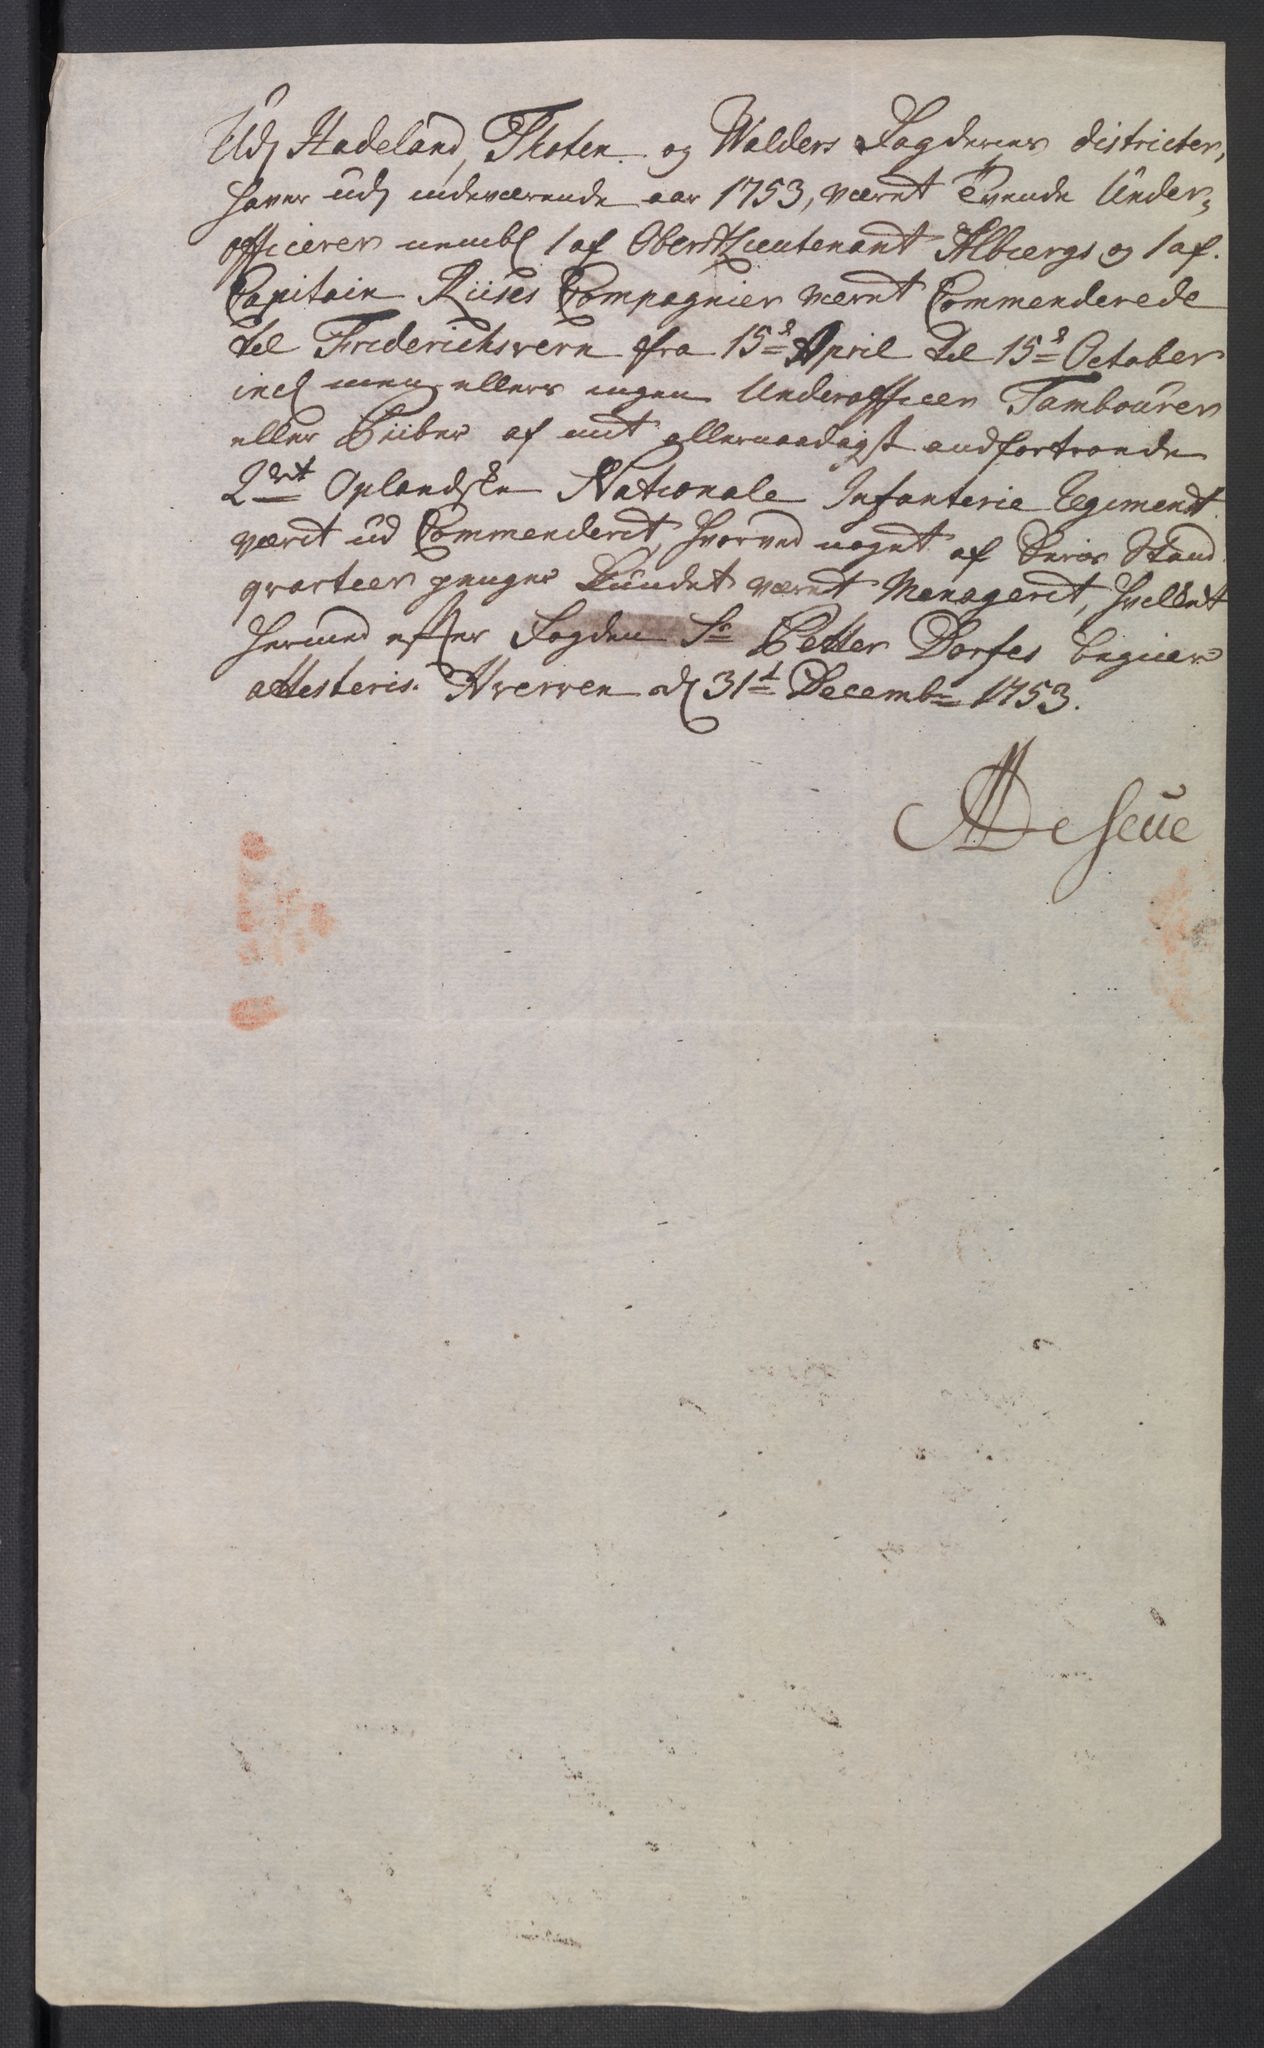 Udj Hadeland, Thoten og Walders Fogderies districter,
haver udj indeværende aar 1753, været tvende Under-
officerer nembl 1 af Oberstlieutenant Albergs og 1 af
Capitain Riises Compagnier været Commenderede
til Friderichsvern fra 15de April til 15de October
incl men ellers ingen Underofficer Tambourer
eller Piiber af mit allernaadigst andfortroede
2det Oplandske Nationale Infanterie Regiment
værit ud Commenderet, hvorved noget af Deris Stand
qvarteer penger kundet været Menagerit, hvilket
hermed efter Fogden Sr Petter Dorfes begier
attesteris. Hverven dj 31t Decembr 1753.
De Seue